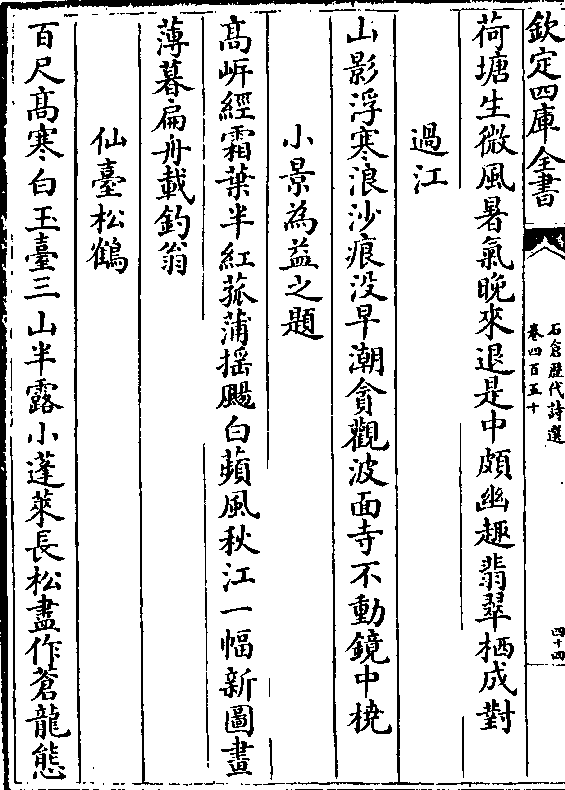 欽定四庫全書
石倉歴代詩選
卷四百五十
四十四
荷塘生微風暑氣晚來退是中頗幽趣翡翠栖成對
過江
山影浮寒浪沙痕没早潮貪觀波面寺不動鏡中橈
小景為益之題
髙㟁經霜葉半紅菰蒲揺颺白蘋風秋江一幅新圖畫
薄暮扁舟載釣翁
仙臺松鶴
百尺髙寒白玉臺三山半露小蓬萊長松盡作蒼龍態